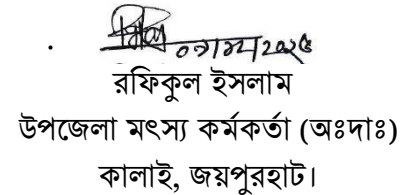 রফিকুল ইসলাম
উপজেলা মৎস্য কর্মকর্তা (অঃদাঃ)
কালাই, জয়পুরহাট।